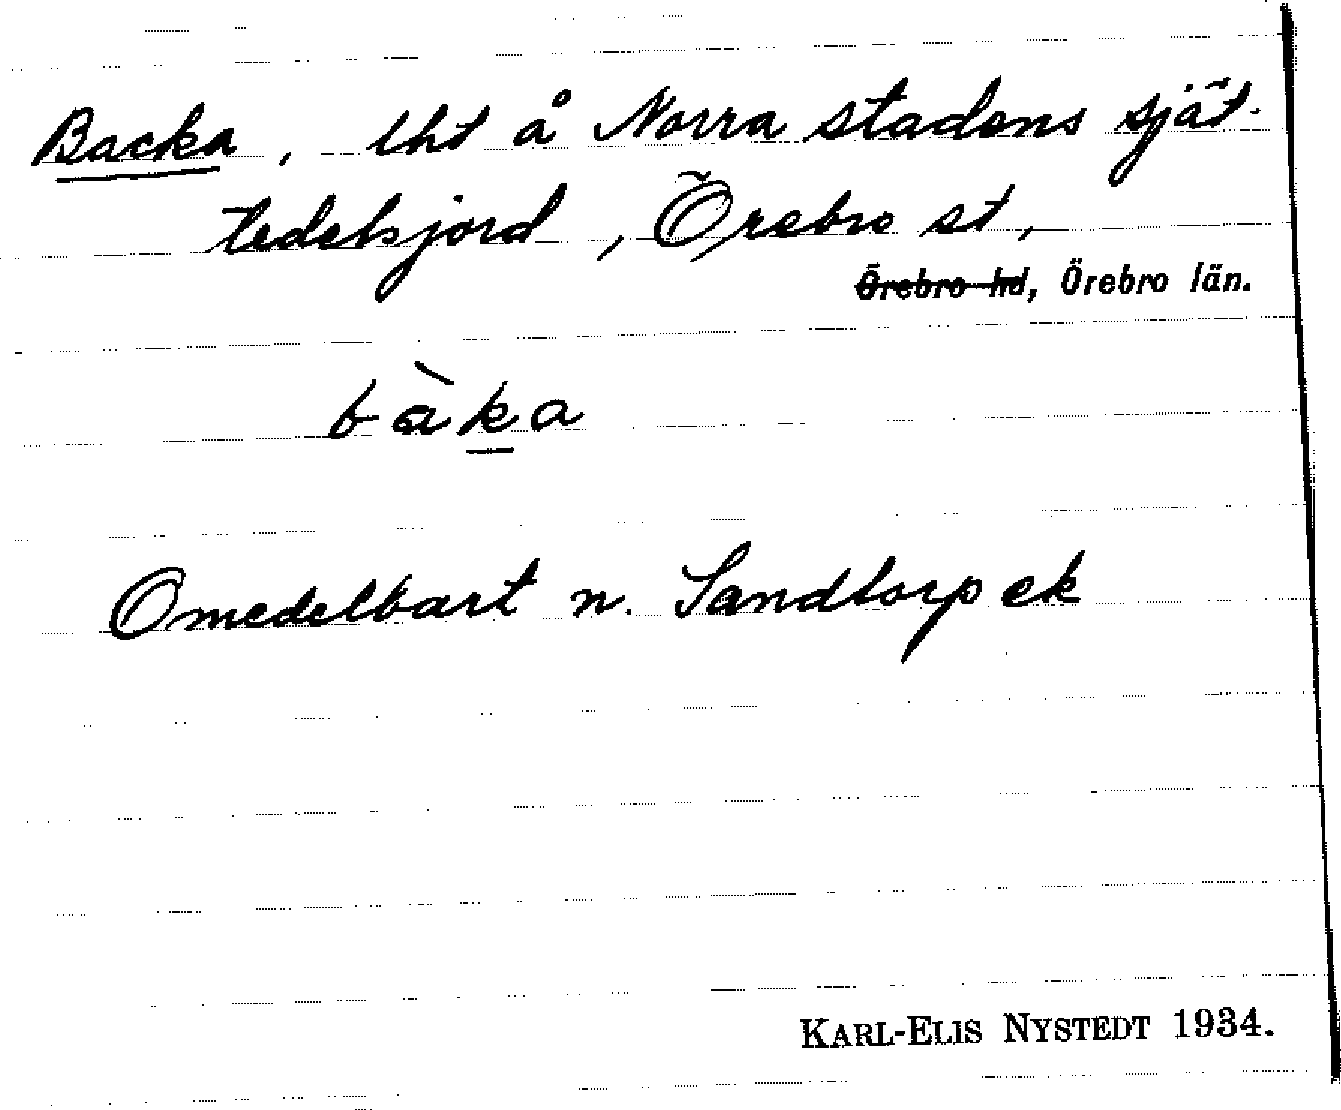 Backa, lht å Norra stadens sjät-
tedelsjord, Örebro st,
Örebro hd, Örebro län.
bàka
Omedelbart n. Sandtorp ek
KARL-ELIS NYSTEDT 1934.